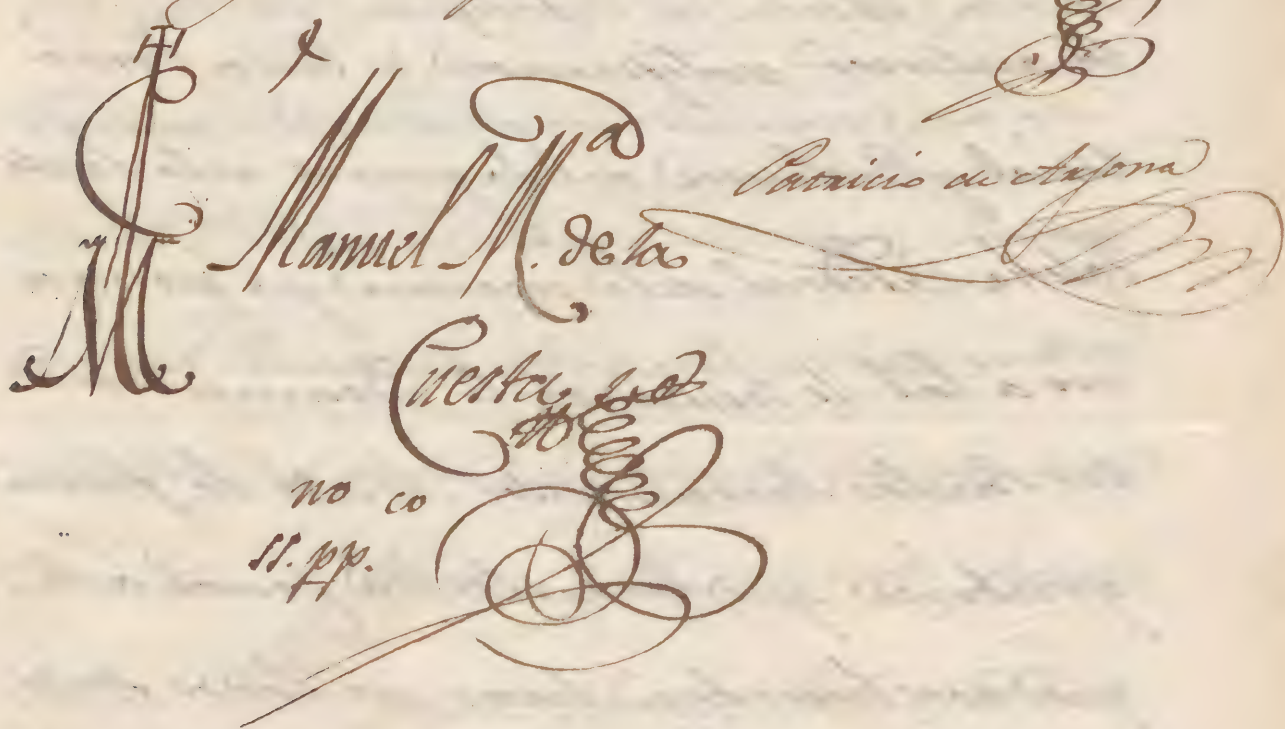 Manuel M.ª de la
Cuesta
Patricio de Arjona
no co
ss. pp.